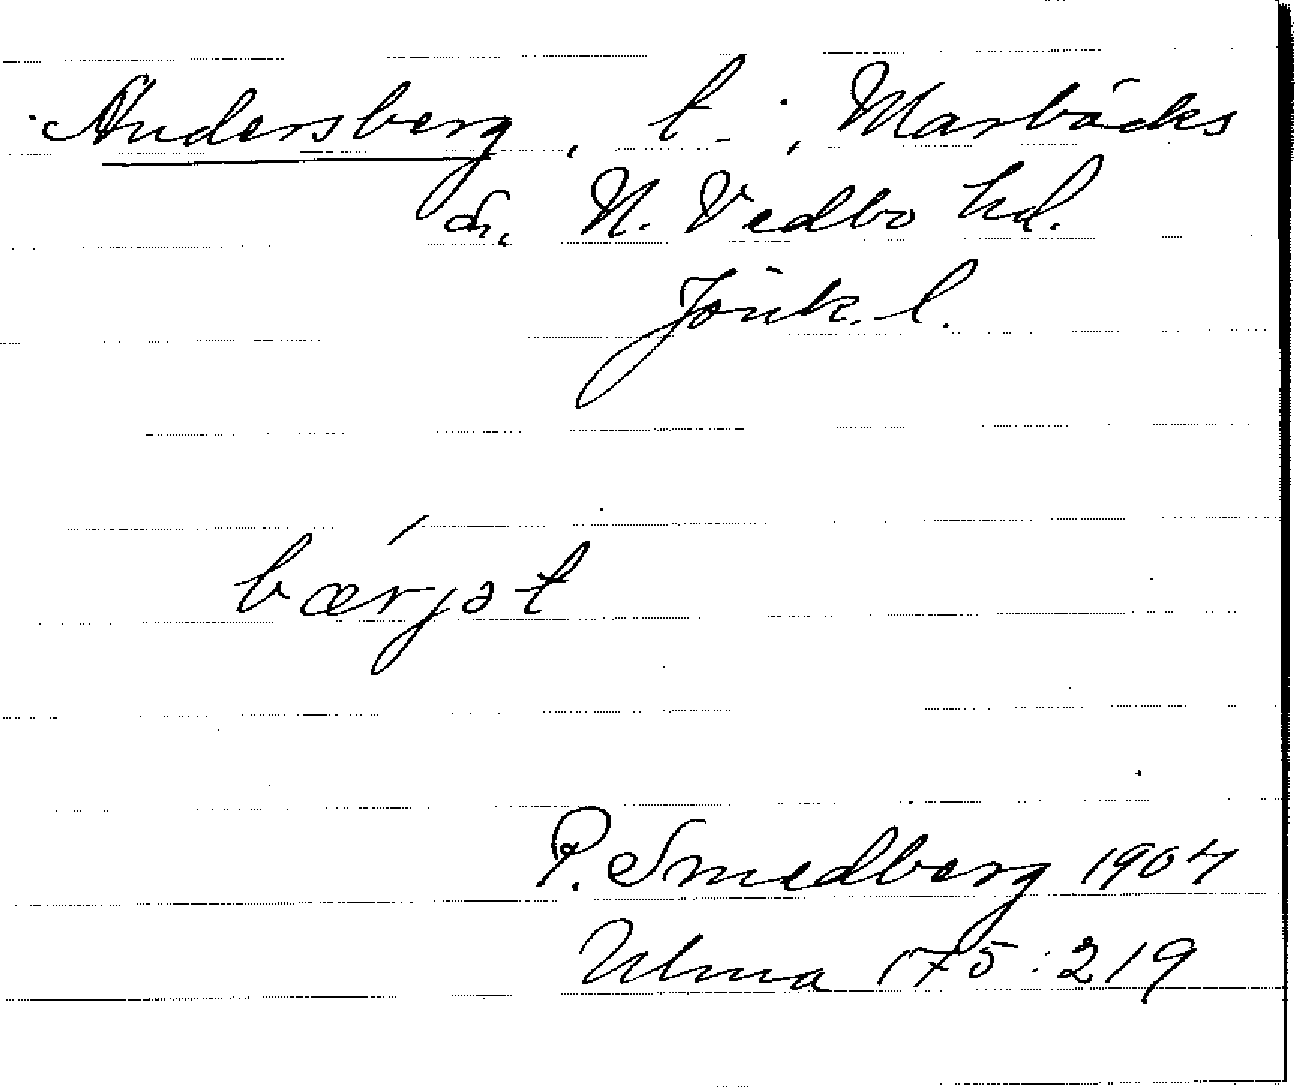 Andersberg, t., Marbäcks
sn. N. Vedbo hd.
Jönk. l.
bærjət
P. Smedberg 1904
Ulma 175:219